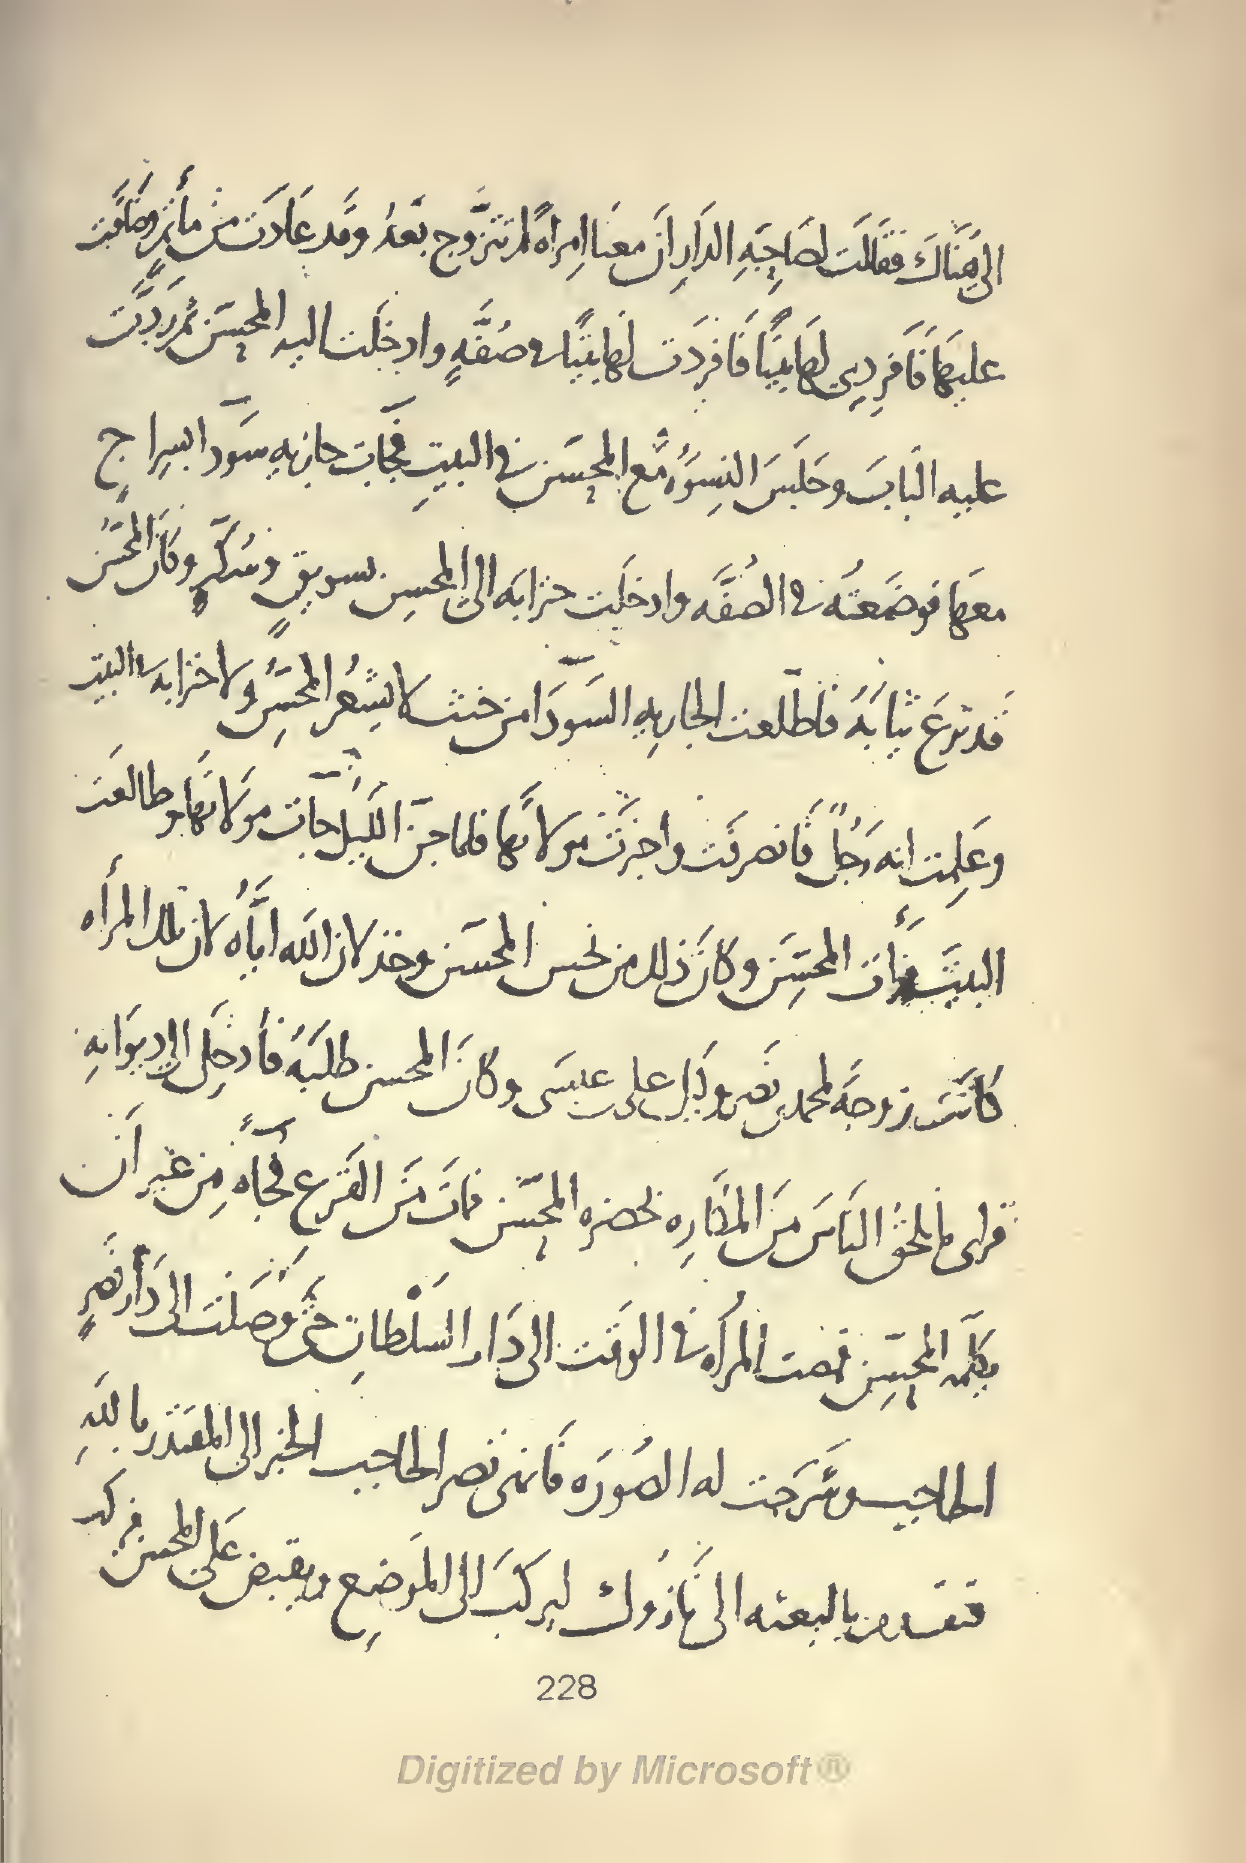 الى هناك فقالت لصَاحِبَةِ الدَارِ اَنّ معنَا اِمراةً لم تتزَوج بَعدُ وقد عَادَت من مأتمٍ وضاقت
عليهَا فَافرِدِى لَها بيتًا فَافرَدَت لَها بيتًا فى صُفَّةٍ وادخَلَت اليه المحسّن ثم رَدَّت
عليه الباب وجَلَسَ النِسوَةُ مَع المحسّن فى البيتِ فجَآت جاريهٍ سَودآ بسِراجٍ
معَها فوضَعَتهُ فى الصُفَّه وادخَلَت حزابَه الى المحسِن بسويقٍ وسُكّرٍ وكانَ المحسّن
قَد نزعَ ثيابَهُ فاطّلعت الجاريهِ السَودآ من حيث لا يشعُر المحسّنُ ولا حزابه فى البيت
وعَلِمت انه رَجُلٌ فَانصرفَت واخبرَت مَولاتَها فلما جنّ اللَيلُ جآت مَولاتهَا وطالعَت
البيتَ فرأت المحسِّن وكانَ ذلك من نحس المحسّن وخذلان الله ايّاهُ لان تلك المرأه
كَانت زوجَة لمحمد بن نصر وكيل على بن عيسَى وكانَ المحسن طلبَهُ فأدخِلَ الى ديوَانِهِ
فراى ما يلحقُ الناسَ مِنَ المكَارِه بحضره المحسّن فمات مِنَ الفَزَع فُجآةً مِن غير اَن
يكلّمه المحسّن فمضت المرأه فى الوقت الى دَار السَلْطانِ حتى وَصَلَت الى دَار نصرٍ
الحاجب وشَرَحَت له الصُورَه فَانهى نصر الحاجب الخبر الى المقتَدر باللهِ
فتقدم بالبعثه الى نازُوك ليركَبَ الى المَوضِعِ ويقبض عَلى المحسن فركب
228
Digitized by Microsoft®